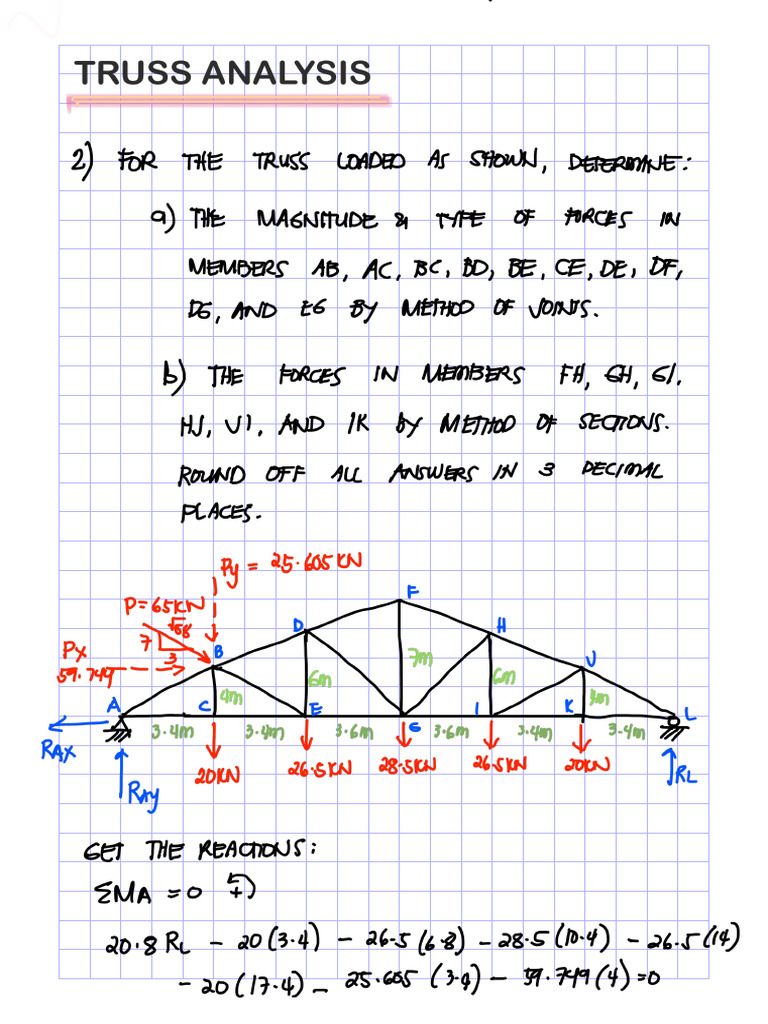 TRUSS ANALYSIS
2) FOR THE TRUSS LOADED AS SHOWN, DETERMINE:
a) THE MAGNITUDE & TYPE OF FORCES IN
MEMBERS AB, AC, BC, BD, BE, CE, DE, DF,
DG, AND EG BY METHOD OF JOINTS.
b) THE FORCES IN MEMBERS FH, GH, GI,
HJ, JI, AND IK BY METHOD OF SECTIONS.
ROUND OFF ALL ANSWERS IN 3 DECIMAL
PLACES.
Py = 25.605KN
P=65KN
√58
7
3
Px
59.749
A
B
C
D
E
F
G
H
I
J
K
L
4m
6m
7m
6m
4m
3.4m 3.4m 3.6m 3.6m 3.4m 3.4m
RAX
RAy
20KN
26.5KN
28.5KN
26.5KN
20KN
RL
GET THE REACTIONS:
ΣMA = 0 +
20.8 RL - 20(3.4) - 26.5(6.8) - 28.5(10.4) - 26.5(14)
- 20(17.4) - 25.605(3.4) - 59.749(4)=0